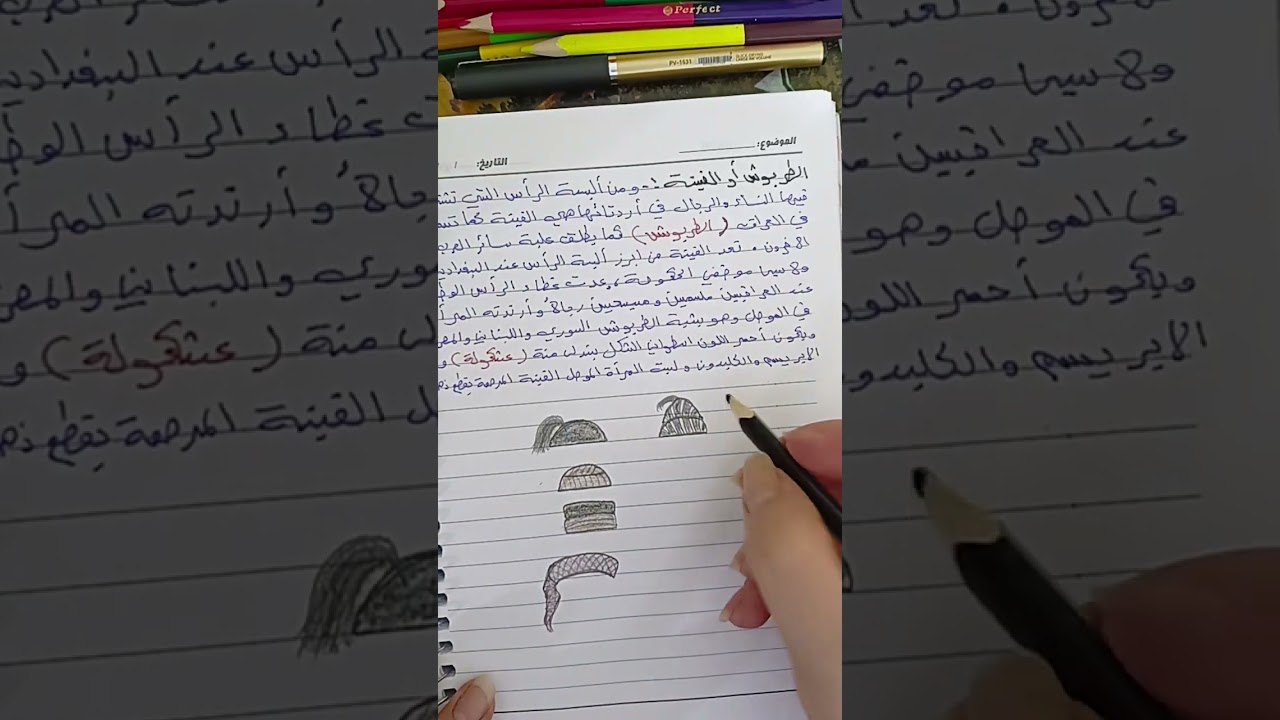 Perfect
PV-1531
الموضوع:
التاريخ: /
الطربوش أو الفينة :- ومن ألبسة الرأس التي تشت
فيها النساء والرجال في أردتائها هي الفينة كما تس
في العراق (الطربوش) كما يطلق علية سائر العرب
الاخرون . تعد الفينة من ابرز ألبسة الرأس عند البغدادي
ولا سيما موظفي الحكومة ، عدت غطاء الرأس الوط
عند العراقيين مسلمين ومسيحيين رجالاً وأرتدته المرأ
في الموصل وهو يشبة الطربوش السوري واللبناني والمصر
ويكون أحمر اللون اسطواني الشكل يتدلى منة (عثكولة) و
الابريسم والكلبدون ولبست المرأة الموصل الفينة المرصعة بقطع ذه